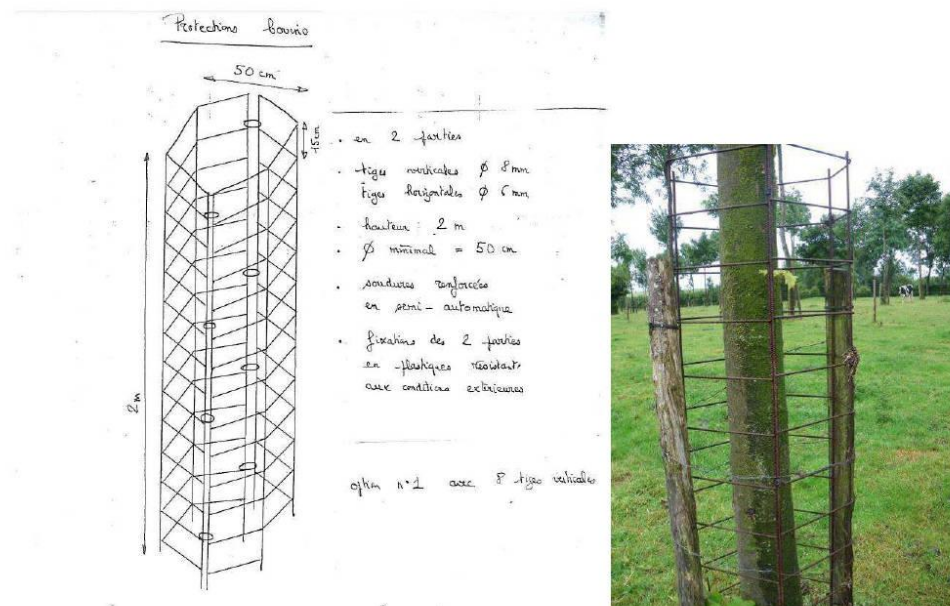 Protections bovins
50 cm
15cm
2m
. en 2 parties
. tiges verticales Ø 8mm
tiges horizontales Ø 6 mm
. hauteur : 2 m
. Ø minimal = 50 cm
. soudures renforcées
en semi-automatique
. fixations des 2 parties
en plastiques résistants
aux conditions extérieures
option n°1 avec 8 tiges verticales